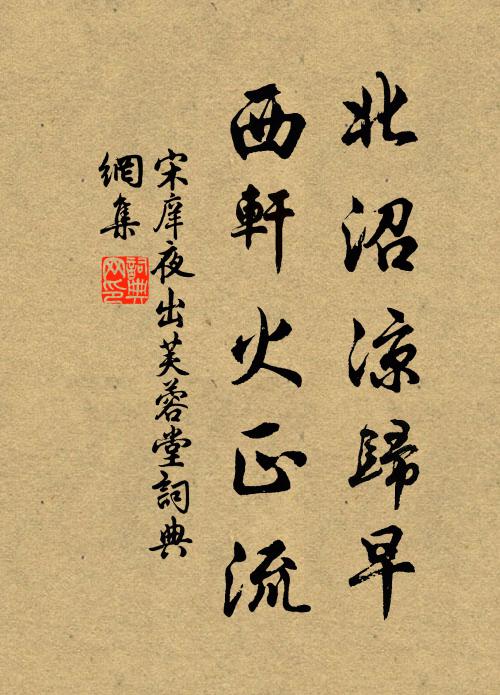 北沼凉歸早
西軒火正流
宋庠夜出芙蓉堂詞典
網集
詞典網印